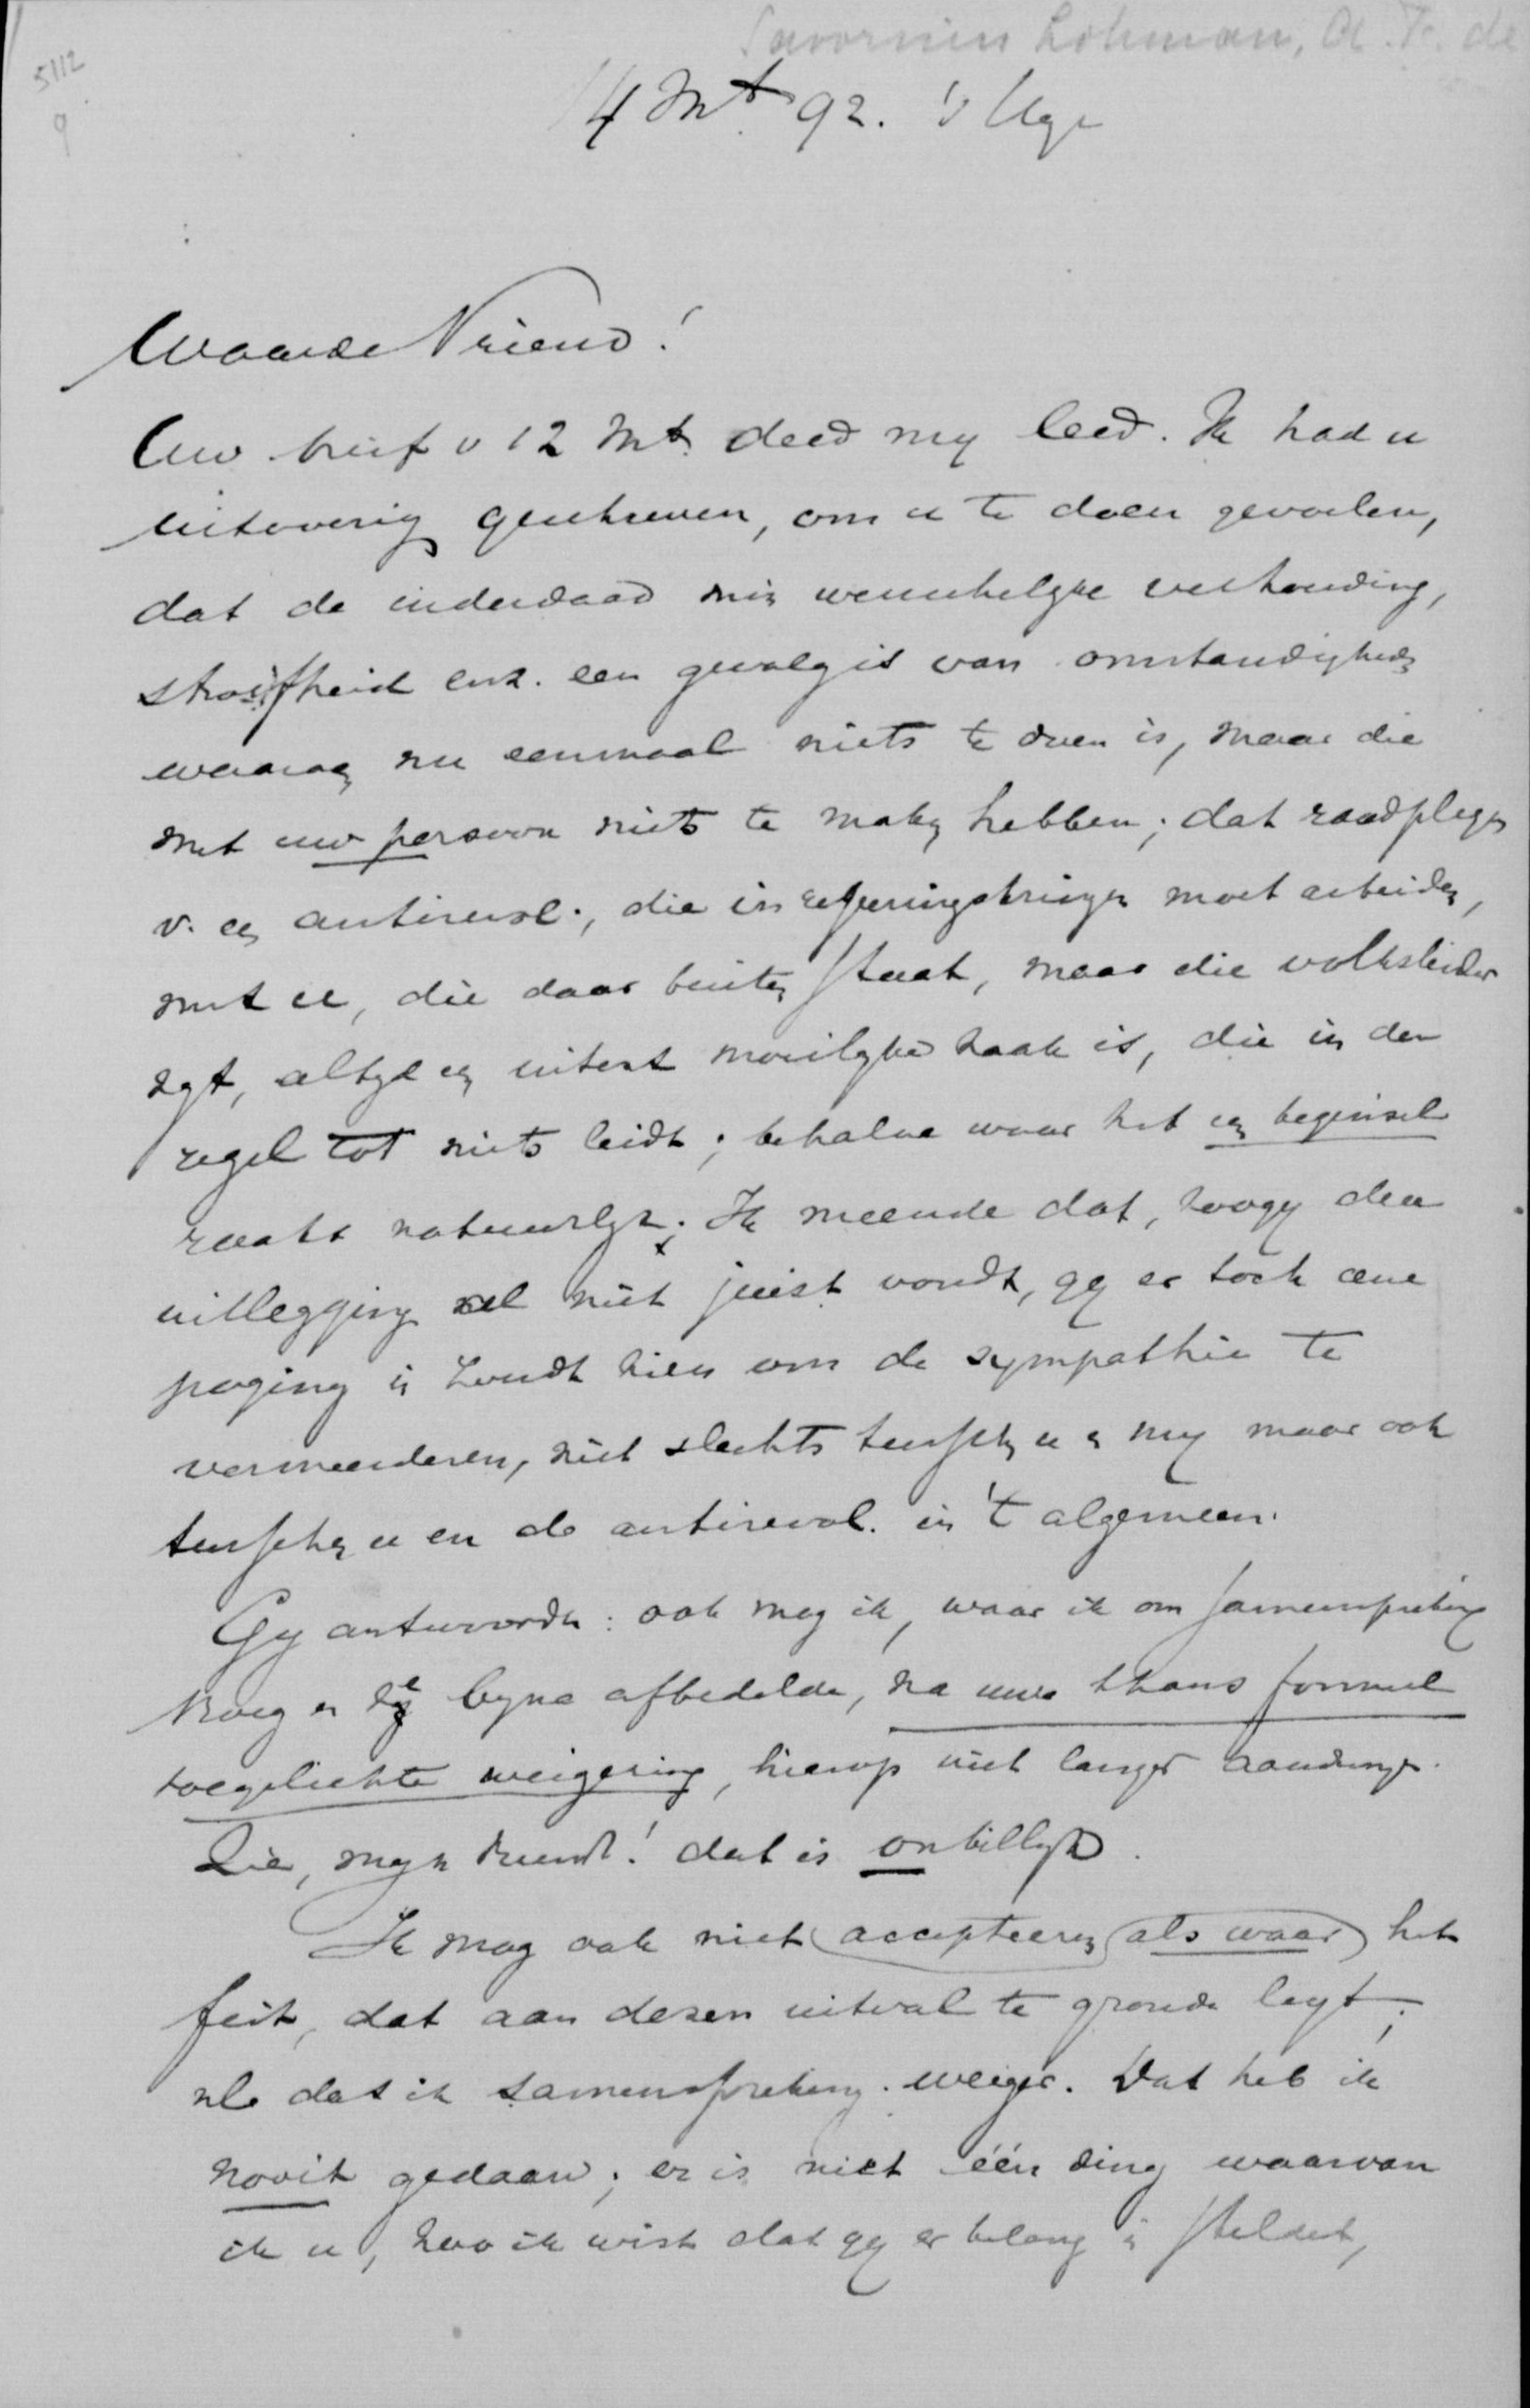 Savornin Lohman, A. F. de
5112
9
14 Mt 92. 's Hage
Waarde Vriend!
Uw brief v 12 Mt. deed my leed. Ik had u
uitvoerig geschreven, om u te doen gevoelen,
dat de inderdaad min wenschelyke verhouding,
stroefheid enz. een gevolg is van omstandigheden
waaraan nu eenmaal niets te doen is, maar die
met uw persoon niets te maken hebben; dat raadplegen
v. een antirevol., die in regeeringskringen moet arbeiden,
met u, die daar buiten staat, maar die volksleider
zyt, altyd een uiterst moeilyke zaak is, die in den
regel tot niets leidt; behalve waar het een beginsel
raakt natuurlyk. Ik meende dat, zoo gy deze
uitlegging al niet juist vondt, gy er toch eene
poging in zoudt zien om de sympathie te
vermeerderen, niet slechts tusschen u en my maar ook
tusschen u en de antirevol. in 't algemeen.
Gy antwoordt: ook mag ik, waar ik om samenspreking
vroeg en ze byna afbedelde, na uwe thans formeel
toegelichte weigering, hierop niet langer aandringen.
Zie, myn vriend! dat is onbillyk.
Ik mag ook niet accepteeren als waar het
feit, dat aan dezen uitval te gronde legt;
nl. dat ik samenspreking weiger. Dat heb ik
nooit gedaan; er is niet één ding waarvan
ik u, zoo ik wist dat gy er belang in steldet,